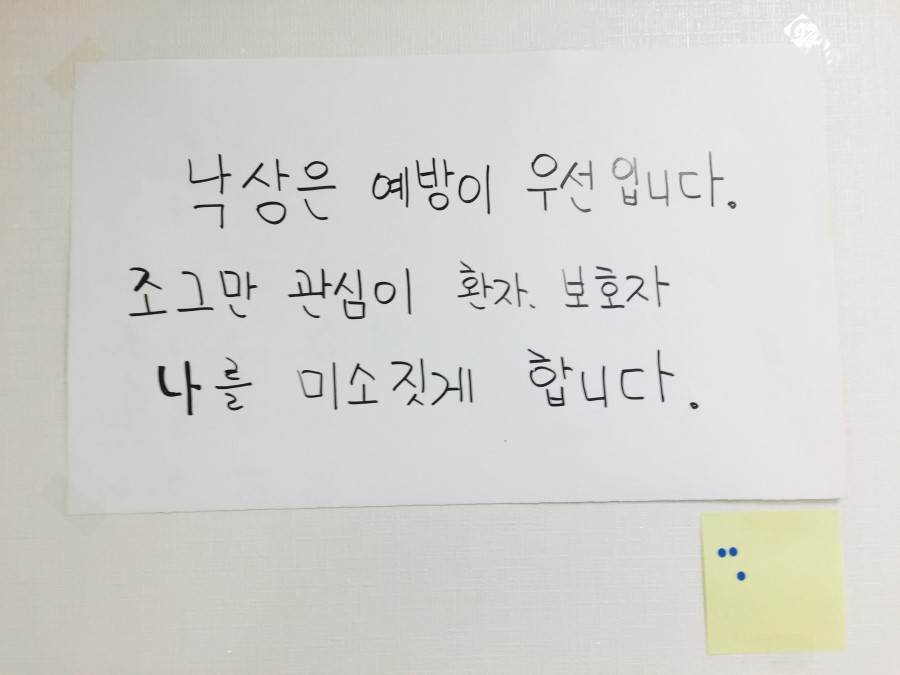 낙상은 예방이 우선입니다.
조그만 관심이 환자. 보호자
나를 미소짓게 합니다.